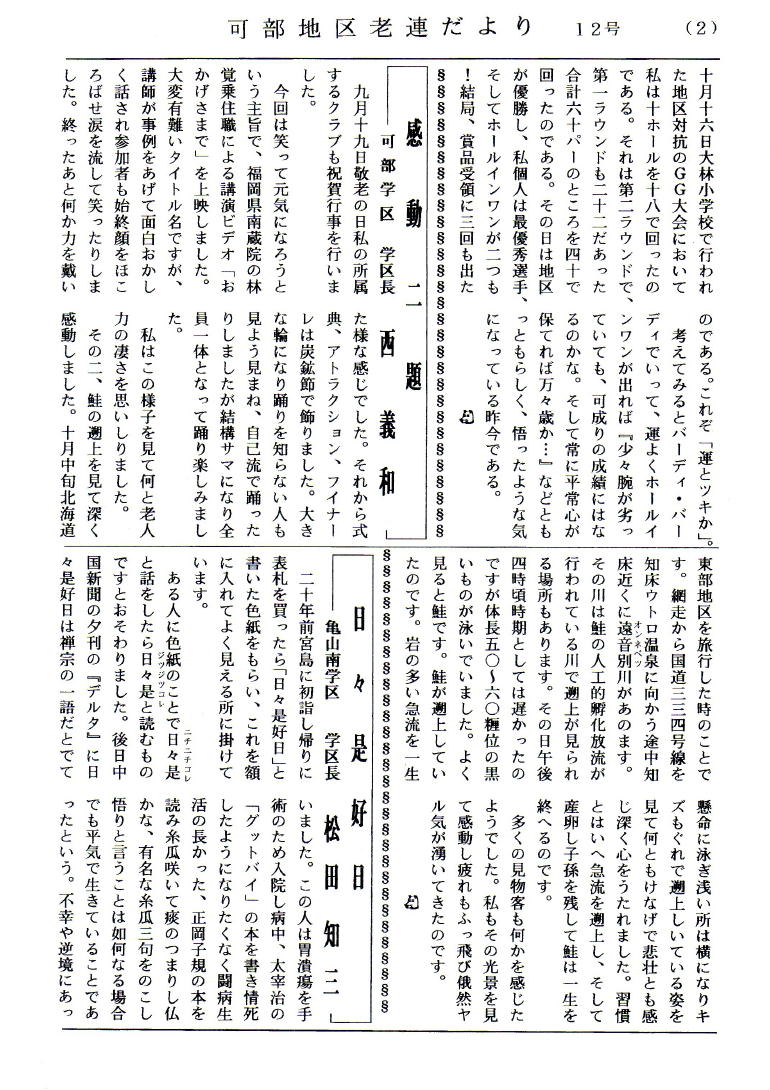 可部地区老連だより　12号　（2）
十月十六日大林小学校で行われ
た地区対抗のGG大会において
私は十ホールを十八で回ったの
である。それは第二ラウンドで、
第一ラウンドも二十二だあった
合計六十パーのところを四十で
回ったのである。その日は地区
が優勝し、私個人は最優秀選手、
そしてホールインワンが二つも
！結局、賞品受領に三回も出た
のである。これぞ「運とツキか」。
考えてみるとバーディ・バー
ディでいって、運よくホールイ
ンワンが出れば『少々腕が劣っ
ていても、可成りの成績にはな
るのかな。そして常に平常心が
保てれば万々歳か…』などとも
っともらしく、悟ったような気
になっている昨今である。
§§§§§§§§§§§§§§§§§§§§§§§§§§§§§§
感動二題
可部学区　学区長　西義和
九月十九日敬老の日私の所属
するクラブも祝賀行事を行いま
した。
今回は笑って元気になろうと
いう主旨で、福岡県南蔵院の林
覚乗住職による講演ビデオ「お
かげさまで」を上映しました。
大変有難いタイトル名ですが、
講師が事例をあげて面白おかし
く話され参加者も始終顔をほこ
ろばせ涙を流して笑ったりしま
した。終ったあと何か力を戴い
た様な感じでした。それから式
典、アトラクション、フイナー
レは炭鉱節で飾りました。大き
な輪になり踊りを知らない人も
見よう見まね、自己流で踊った
りしましたが結構サマになり全
員一体となって踊り楽しみまし
た。
私はこの様子を見て何と老人
力の凄さを思いしりました。
その二、鮭の遡上を見て深く
感動しました。十月中旬北海道
東部地区を旅行した時のことで
す。網走から国道三三四号線を
知床ウトロ温泉に向かう途中知
床近くに遠音別川があのます。
オンネベツ
その川は鮭の人工的孵化放流が
行われている川で遡上が見られ
る場所もあります。その日午後
四時頃時期としては遅かったの
ですが体長五〇～六〇糎位の黒
いものが泳いでいました。よく
見ると鮭です。鮭が遡上してい
たのです。岩の多い急流を一生
懸命に泳ぎ浅い所は横になりキ
ズもぐれで遡上しいている姿を
見て何ともけなげで悲壮とも感
じ深く心をうたれました。習慣
とはいへ急流を遡上し、そして
産卵し子孫を残して鮭は一生を
終へるのです。
多くの見物客も何かを感じた
ようでした。私もその光景を見
て感動し疲れもふっ飛び俄然ヤ
ル気が湧いてきたのです。
§§§§§§§§§§§§§§§§§§§§§§§§§§§§§§
日々是好日
亀山南学区　学区長　松田知三
二十年前宮島に初詣し帰りに
表札を買ったら「日々是好日」と
書いた色紙をもらい、これを額
に入れてよく見える所に掛けて
います。
ある人に色紙のことで日々是
ニチニチコレ
と話をしたら日々是と読むもの
ジツジツコレ
ですとおそわりました。後日中
国新聞の夕刊の『デルタ』に日
々是好日は禅宗の一語だとでて
いました。この人は胃潰瘍を手
術のため入院し病中、太宰治の
「グットバイ」の本を書き情死
したようになりたくなく闘病生
活の長かった、正岡子規の本を
読み糸瓜咲いて痰のつまりし仏
かな、有名な糸瓜三句をのこし
悟りと言うことは如何なる場合
でも平気で生きていることであ
ったという。不幸や逆境にあっ